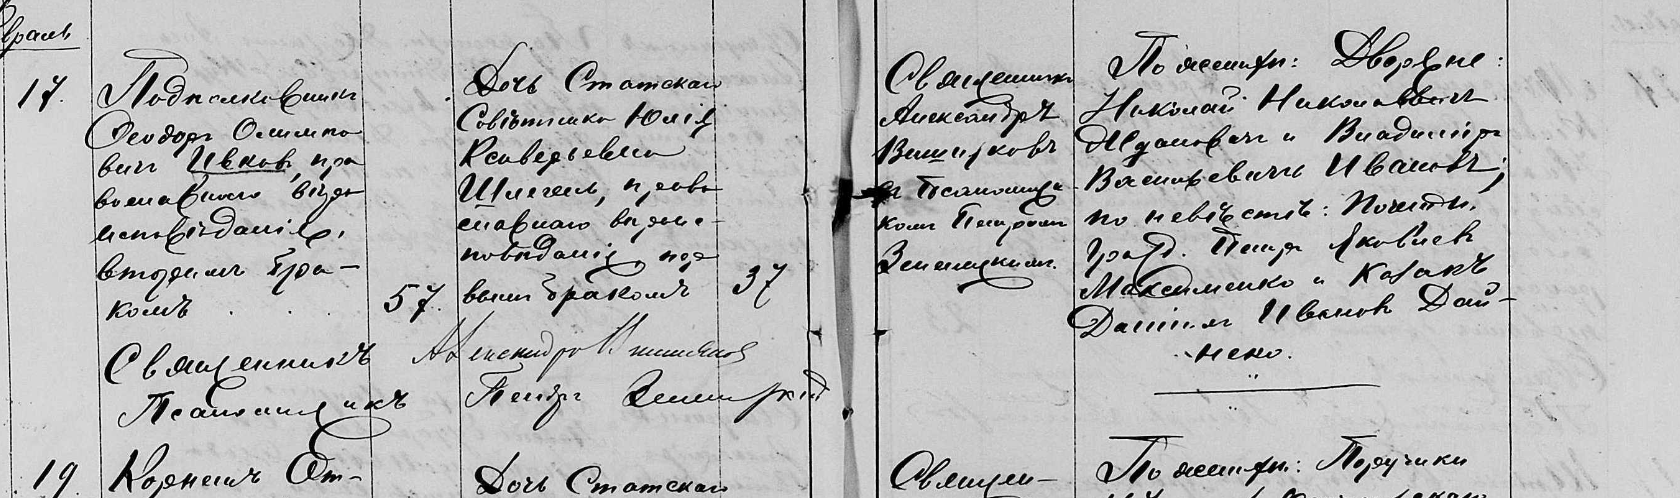 17.
Подполковникъ
Ѳеодоръ Олимпо
вичъ Ивковъ, пра
вославнаго вѣро
исповѣданія,
вторымъ бра-
комъ
57.
Дочь Статскаго
Совѣтника Юлія
Ксаверьевна
православнаго вѣроис-
повѣданія, пер
вымъ бракомъ
37
Священникъ
Александръ
Вишняковъ
съ Псаломщи-
комъ Петромъ
По женихѣ: Дворяне:
Николай Николаевичъ
Ждановичъ и Владиміръ
Васильевичъ Ивановъ;
по невѣстѣ: Почетн.
Гражд. Петръ Яковлевъ
Максименко и Козакъ
Даніилъ Ивановъ Дай-
неко.
Священникъ Александръ Вишняковъ
Псаломщикъ Петръ
19. Корнетъ От-
Дочь Статскаго
Священ-
По женихѣ: Поручики